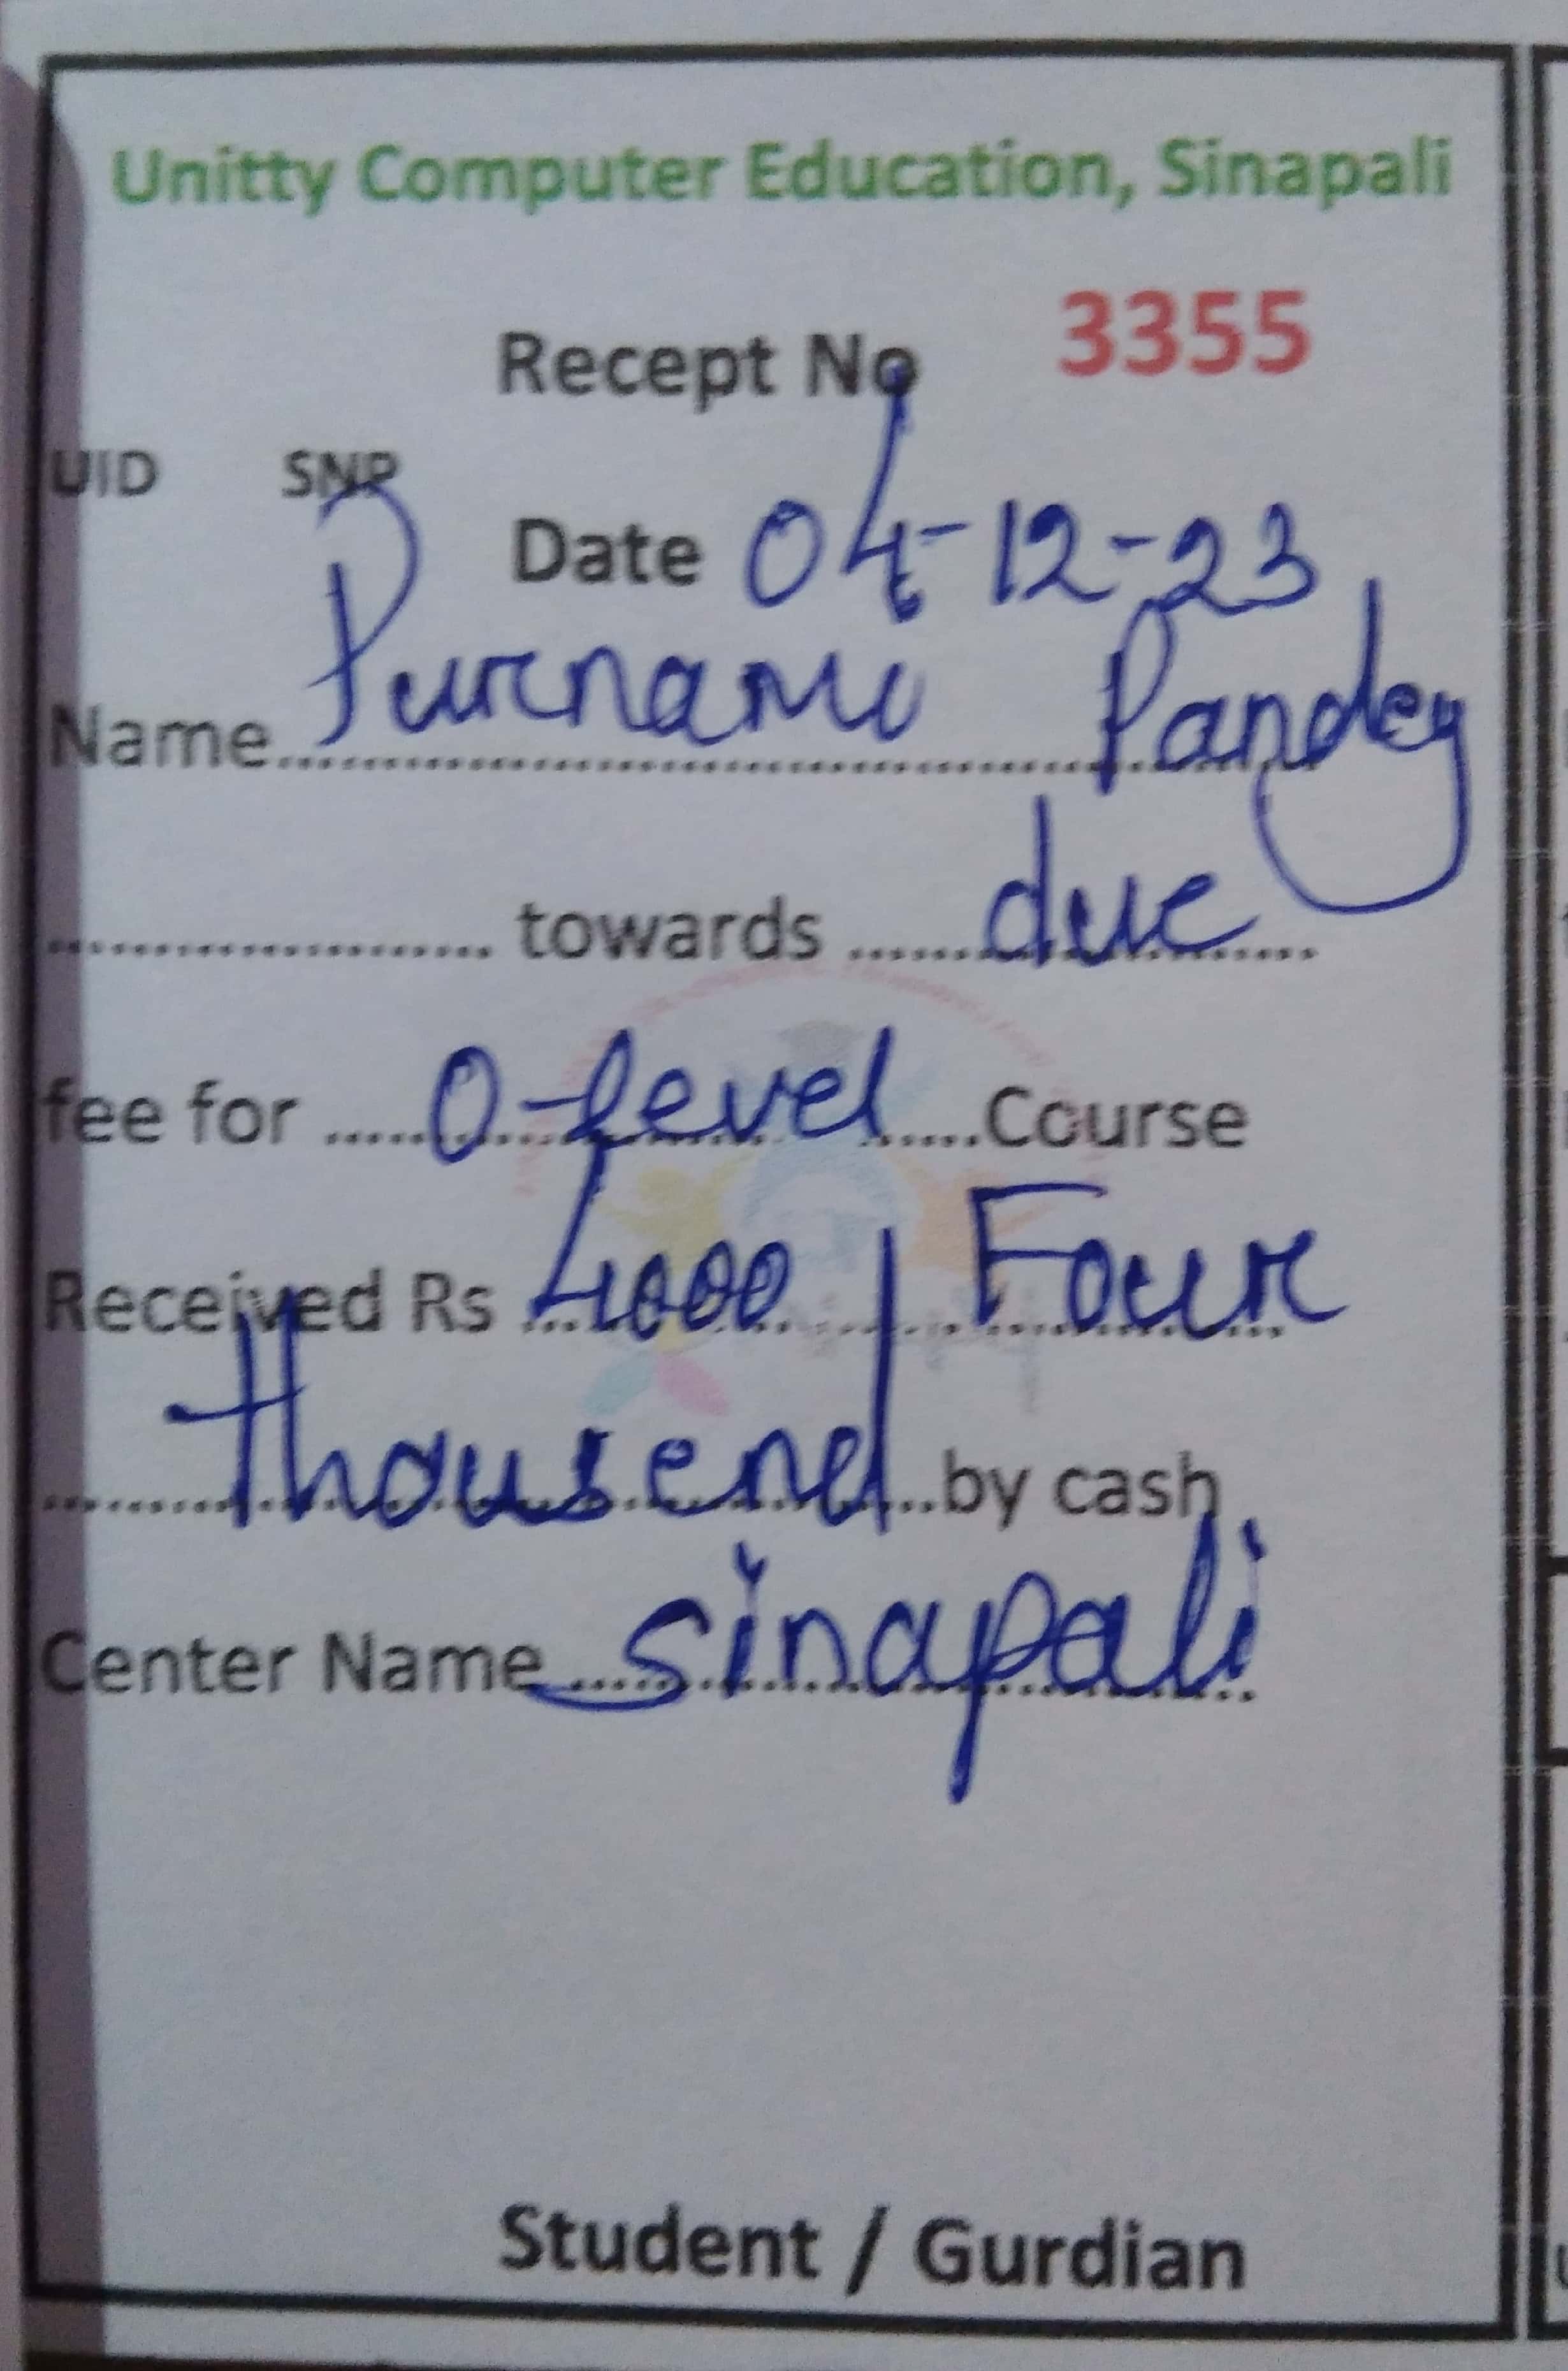 Unitty Computer Education, Sinapali
Recept No 3355
UID SNP
Date 04-12-23
Name Purnami Pandey
.................... towards ....... due .......
fee for ..... O-level ......Course
Received Rs ... 4000/ Four
thousend by cash
Center Name sinapali
Student / Gurdian